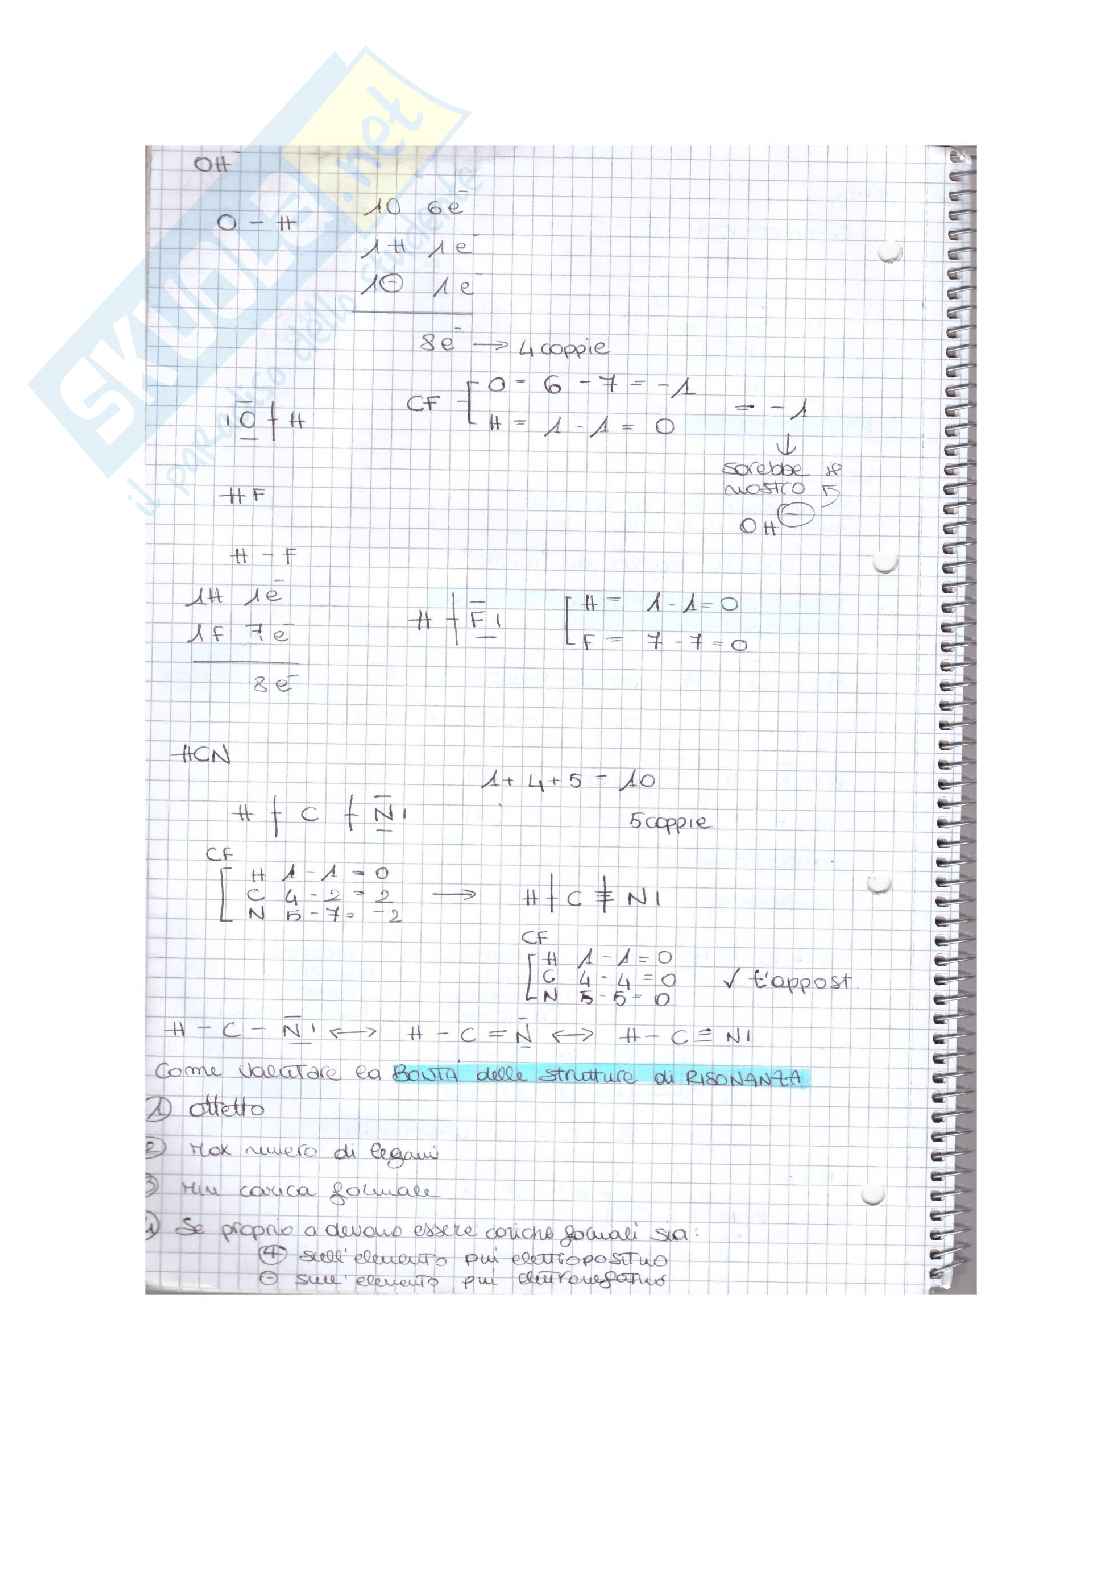 OH⁻
O - H
1O 6e⁻
1H 1e⁻
1⊖ 1e⁻
8e⁻ → 4 coppie
|O̅ + H
CF
O = 6 - 7 = -1
H = 1 - 1 = 0
= -1
↓
sarebbe il
nostro
OH⊖
HF
H - F
1H 1e⁻
1F 7e⁻
8e⁻
H + F̅|
H = 1 - 1 = 0
F = 7 - 7 = 0
HCN
1 + 4 + 5 = 10
5 coppie
H + C + N̅|
CF
H 1 - 1 = 0
C 4 - 2 = 2
N 5 - 7 = -2
→ H + C ≡ N|
CF
H 1 - 1 = 0
C 4 - 4 = 0
N 5 - 5 = 0
√ t'appost
H - C - N̅| ↔ H - C = N̅ ↔ H - C ≡ N|
Come valutare la BONTÀ delle strutture di RISONANZA
① ottetto
② Max numero di legami
③ Min carica formale
④ Se proprio ci devono essere cariche formali sia:
⊕ sull'elemento più elettropositivo
⊖ sull'elemento più elettronegativo
SKUOLA.net
il paradiso dello studente